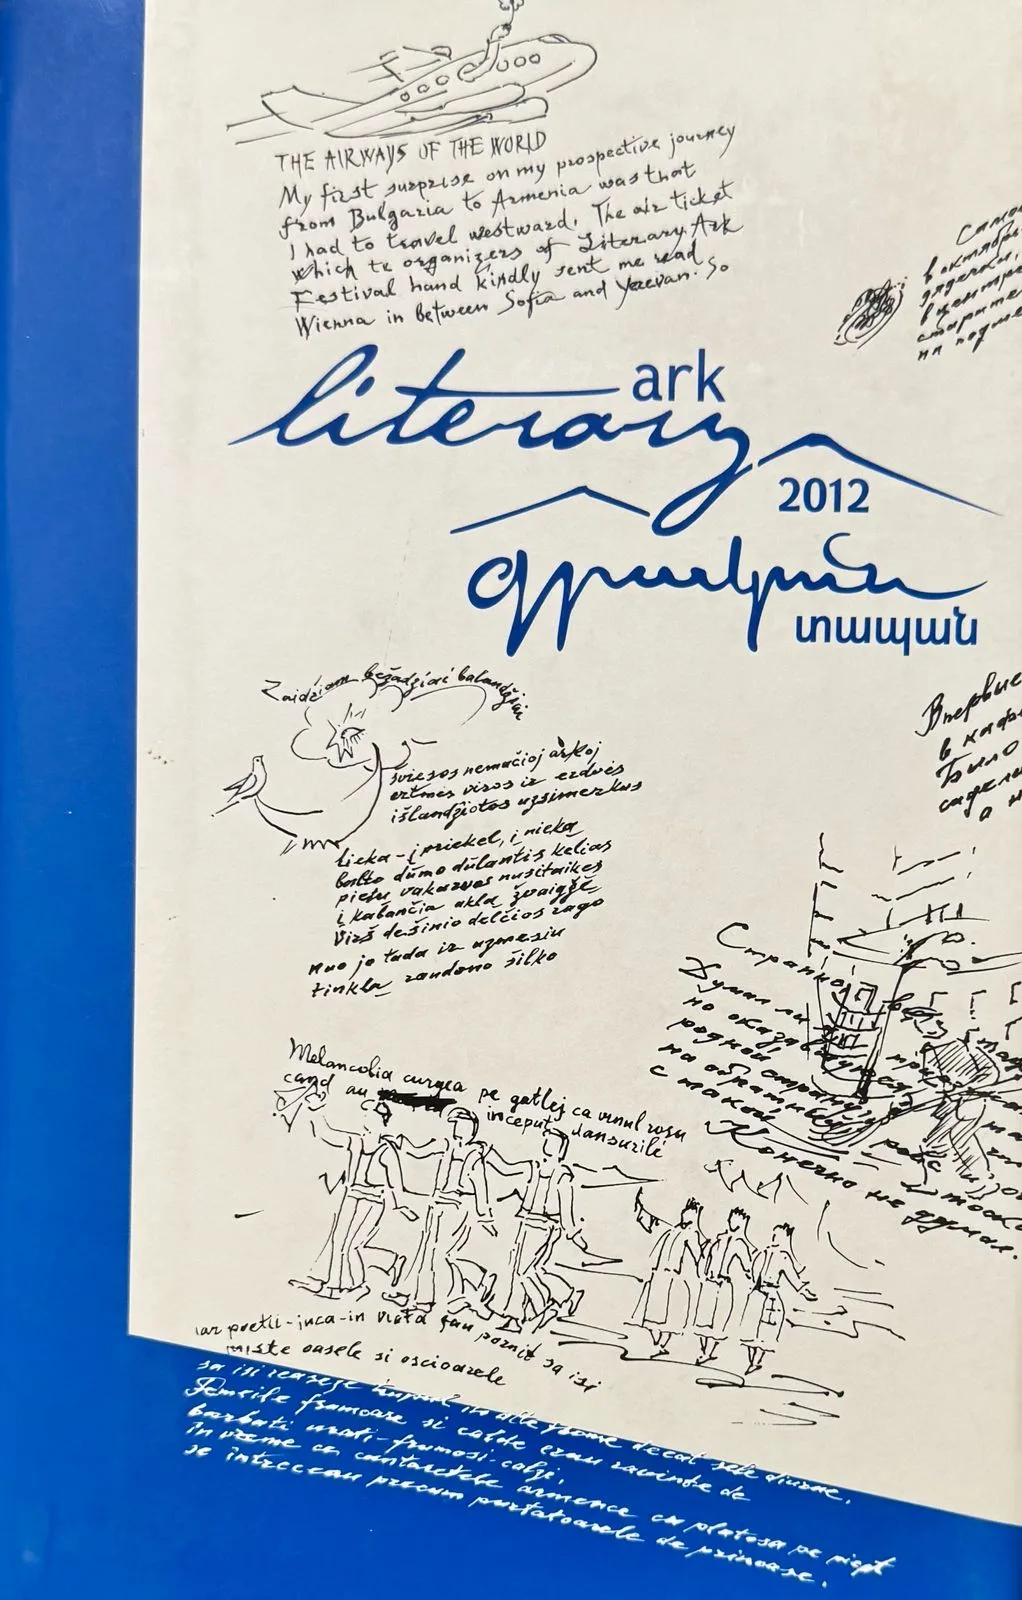 THE AIRWAYS OF THE WORLD
My first surprise on my prospective journey
from Bulgaria to Armenia was that
I had to travel westward. The air ticket
which te organizers of Literary Ark
Festival hand kindly sent me read
Wienna in between Sofia and Yerevan. So
в октябрь
literary ark
2012
գրական
տապան
Zaidžiam bežadžiai balandžiai
šviesos nemačioj arkoj
ertmės viros ir erdvės
išlandžiotos užsimerkus
lieka - į priekel, į nieką
balto dūmo dūlantis kelias
pietų vakarvos nusitaikęs
į kabančia aklą žvaigždę
Virš dešinio delčios rago
nuo jo tada ir užmesiu
tinklą raudono šilko
Впервые
в кафе
Было
сидели
а н
Странно,
Думал ли
но оказавшись
родной страну,
на обратный рейс и
с такой тоской
Конечно не думал.
Melancolia curgea pe gatlej ca vinul rosu
cand au inceput dansurile
iar poetii-inca-in viata s-au pornit sa isi
miste oasele si oscioarele
sa isi reaseze trupul in alte forme decat cele diurne.
Femeile frumoase si calde erau ravnite de
barbati urati-frumosi-calzi,
in vreme ce cantaretele armence cu platosa pe piept
se intreceau precum purtatoarele de prinoase.